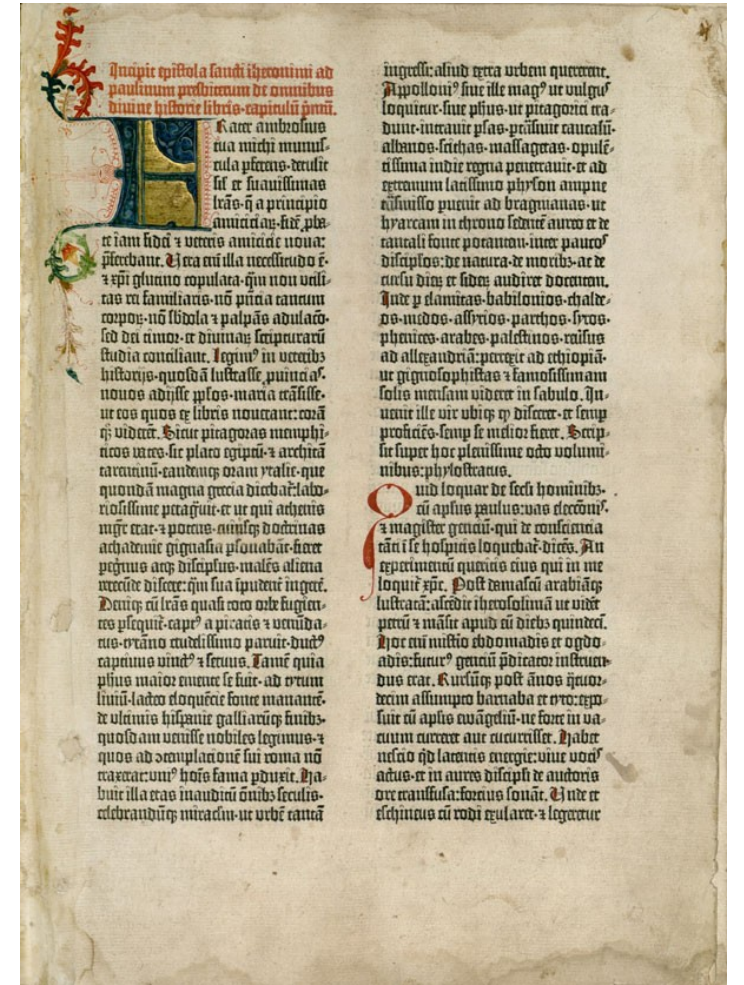 Incipit epistola sancti iheronimi ad
paulinum presbiterum de omnibus
divine historie libris·capitulū p̄mū.
Frater ambrosius
tua michi munus-
cula ꝑferens·detulit
sil' et suauissimas
lr̄as·q̄ a principio
amiciciaꝝ·fidē ꝓba-
te iam fidei ⁊ veteris amicicie noua:
p̄ferebant. Uera em̄ illa necessitudo ē·
⁊ xp̄i glutino copulata·qm̄ non utili-
tas rei familiaris·nō p̄ntia tantum
corpoꝝ·nō sbdola ⁊ palpās adulacō·
sed dei timor·et diuinaꝝ scripturarū
studia conciliant. Legim⁹ in veteribꝫ
historijs·quosdā lustrasse ꝓuincias·
nouos adijsse ꝓplos·maria trāsisse·
ut eos quos ex libris nouerant: corā
qꝫ viderēt. Sicut pitagoras memphi-
ticos vates·sic plato egiptū·⁊ architā
tarentinū·eandemqꝫ oram ytalie·que
quondā magna grecia dicebat̄: labo-
riosissime peragͣuit·et ut qui athenis
mgr̄ erat·⁊ potens·cuiusqꝫ doctrinas
achademie gignasia ꝑsonabāt·fieret
peg̓nus atqꝫ discipulus·malēs aliena
verecūde discere: qͣm sua īpudent̄ ingerē.
Deniqꝫ cū lr̄as quasi toto orbe fugien-
tes ꝑsequit̄·capt⁹ a piratis ⁊ venūda-
tus·tyrāno crudelissimo paruit·duct⁹
captiuus vinct⁹ ⁊ seruus. Tamē quia
ph̄us maior emente se fuit·ad tytum
liuiū·lacteo eloquēcie fonte manantē·
de vltimis hispanie galliarūqꝫ finibꝫ·
quosdam venisse nobiles legimus·⁊
quos ad ɔtemplacionē sui roma nō
traxerat·uni⁹ hoīs fama ꝑduxit. Ha-
buit illa etas inauditū om̄ibꝫ seculis·
celebrandūqꝫ miraclm·ut urbē tantā
ingressi: aliud extra urbem quererent.
Appolloni⁹ siue ille mag⁹ ut vulgus
loquitur·siue ph̄us·ut pitagorici tra-
dunt·intrauit ꝑsas·ꝑtrāsiuit caucasū·
albanos·scithas·massagetas·opulē-
tissima indie regna penetrauit·et ad
extremum latissimo physon ampne
trāsmisso puenit ad bragmanas·ut
hyarcam in throno sedentē aureo et de
tantali fonte potantem·inter paucos
discipl̄os: de natura·de moribꝫ·ac de
cursu dierꝫ et sideꝝ audiret docentem.
Inde ꝑ elamitas·babilonios·chalde-
os·medos·assyrios·parthos·syros·
phenices·arabes·palestinos·reūsus
ad allexandriā: perrexit ad ethiopiā·
ut gignosophistas ⁊ famosissimam
solis mensam videret in sabulo. In-
uenit ille vir ubiqꝫ qd̄ disceret·et semp
proficiēs·semp se melior fieret. Scrip-
sit super hoc plenissime octo volumi-
nibus: phylostratus.
Quid loquar de secli hominibꝫ·
cū apl̄us paulus: vas eleccōnis·
⁊ magister genciū·qui de consciencia
tāti ī se hospitis loquebat̄·dicēs. An
experimentū queritis eius qui in me
loquit̄ xp̄c. Post damascū arabiāqꝫ
lustratā: ascēdit iherosolimā ut vidēt
petrū ⁊ māsit apud eū diebꝫ quindecī.
Hoc em̄ mistio ebdomadis et ogdo-
adis: futur⁹ genciū p̄dicator instruen-
dus erat. Rursūqꝫ post ānos q̄tuor-
decim assumpto barnaba et tyto: expo-
suit cū apl̄is ewāgeliū·ne forte in va-
cuum curreret aut cucurrisset. Habet
nescio qd̄ latentis energie: viue vocis
actus·et in aures discipl̄i de auctoris
ore transfusa: forcius sonat. Unde et
eschineus cū rodi exularet·⁊ legeretur